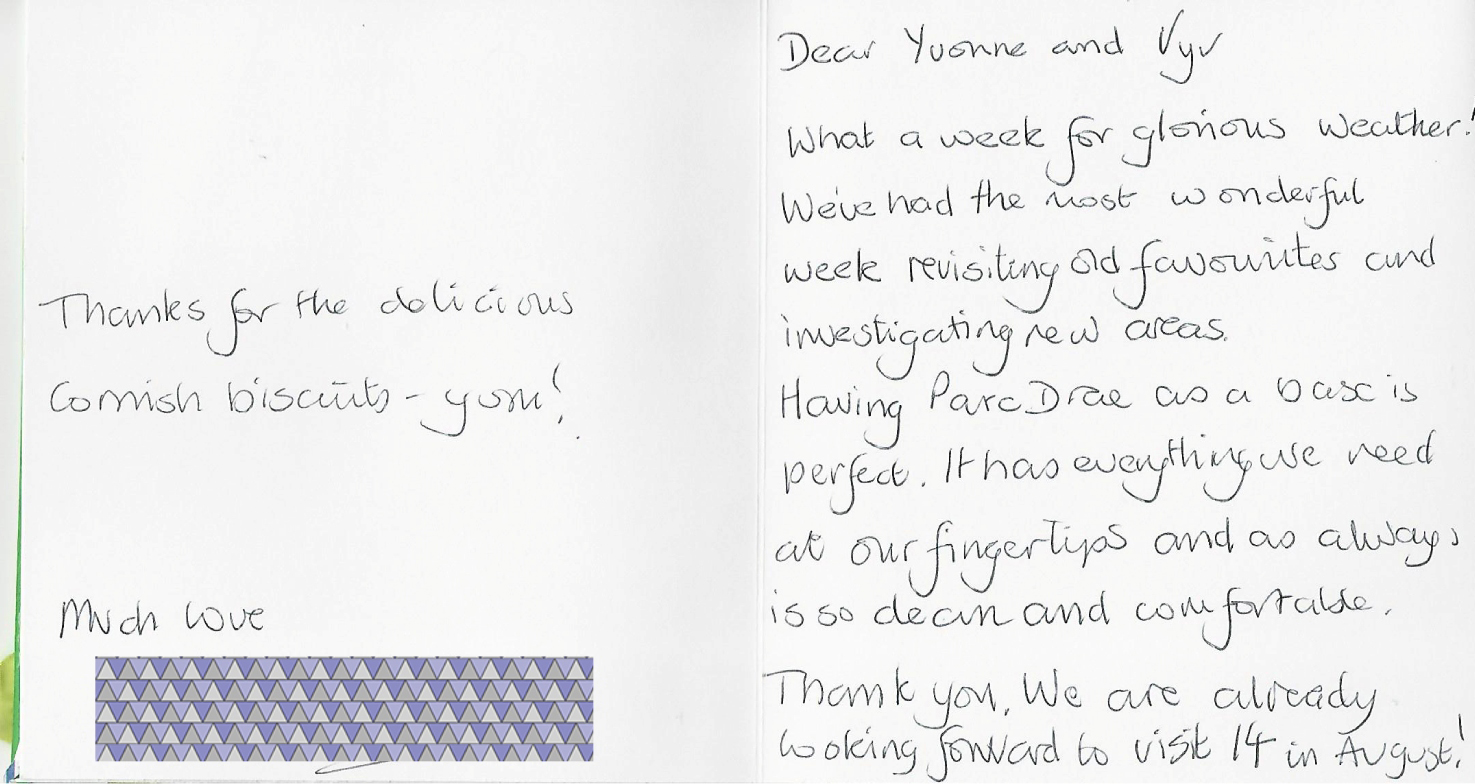 Thanks for the delicious
Cornish biscuits - yum!
Much love
Dear Yvonne and Vyv
What a week for glorious weather!
We've had the most wonderful
week revisiting old favourites and
investigating new areas.
Having Parc Drae as a base is
perfect. It has everything we need
at our fingertips and as always
is so clean and comfortable.
Thank you. We are already
looking forward to visit 14 in August!